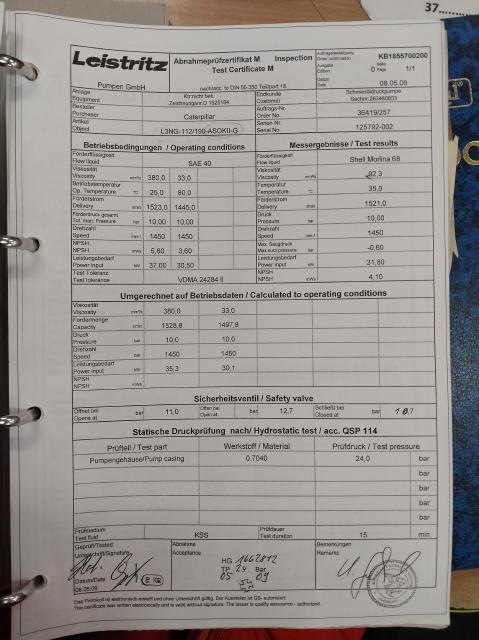 37......
Leistritz
Pumpen GmbH
Abnahmeprüfzertifikat M Inspection
Test Certificate M
nach/acc. to DIN 55 350 Teil/part 18
Auftragsbestätigung
Order confirmation KB1855700200
Ausgabe
Edition 0 Seite Page 1/1
Datum
Date 08.05.09
Anlage
Equipment
Kz:nicht bek.
Zeichnungsnr.D 1625184
Endkunde
Customer
Schmieröldruckpumpe
Sachnr:263460653
Besteller
Purchaser Caterpillar
Auftrags-Nr.
Order No. 36419/257
Artikel
Object L3NG-112/190-ASOKII-G
Serien-Nr.
Serial No. 125792-002
Betriebsbedingungen / Operating conditions
Messergebnisse / Test results
Förderflüssigkeit
Flow liquid SAE 40
Förderflüssigkeit
Flow liquid Shell Morlina 68
Viskosität
Viscosity mm²/s 380,0 33,0
Viskosität
Viscosity mm²/s 92,3
Betriebstemperatur
Op. Temperature °C 25,0 80,0
Temperatur
Temperature °C 35,0
Förderstrom
Delivery l/min 1523,0 1445,0
Förderstrom
Delivery l/min 1521,0
Förderdruck gesamt
Tot. man. Pressure bar 10,00 10,00
Druck
Pressure bar 10,00
Drehzahl
Speed min-1 1450 1450
Drehzahl
Speed min-1 1450
NPSH
NPSH mWs 5,60 3,60
Max. Saugdruck
Max.suct pressure bar -0,60
Leistungsbedarf
Power input kW 37,00 30,50
Leistungsbedarf
Power input kW 31,80
Test Toleranz
Test tolerance VDMA 24284 II
NPSH
NPSH mWs 4,10
Umgerechnet auf Betriebsdaten / Calculated to operating conditions
Viskosität
Viscosity mm²/s 380,0 33,0
Fördermenge
Capacity l/min 1528,8 1497,8
Druck
Pressure bar 10,0 10,0
Drehzahl
Speed 1450 1450
Leistungsbedarf
Power input kW 35,3 30,1
NPSH
NPSH mWs
Sicherheitsventil / Safety valve
Öffnet bei
Opens at bar 11,0 Offen bei
Open at bar 12,7 Schließt bei
Closed at bar 10,7
Statische Druckprüfung nach/ Hydrostatic test / acc. QSP 114
Prüfteil / Test part Werkstoff / Material Prüfdruck / Test pressure
Pumpengehäuse/Pump casing 0.7040 24,0 bar
bar
bar
bar
bar
Prüfmedium
Test fluid KSS
Prüfdauer
Test duration 15 min
Geprüft/Tested
Unterschrift/Signature
Datum/Date
08.05.09
Abnahme
Acceptance
HG 1662812
TP 24 Bar
05 09
Bemerkungen
Remarks
Das Protokoll ist elektronisch erstellt und ohne Unterschrift gültig. Der Aussteller ist QS- autorisiert.
The certificate was written electronically and is valid without signature. The issuer is quality assurance - authorized.